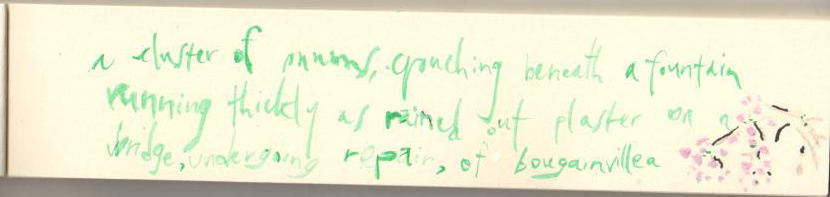 a cluster of nnuns, crouching beneath a fountain
running thickly as rained out plaster on a
bridge, undergoing repair, of bougainvillea